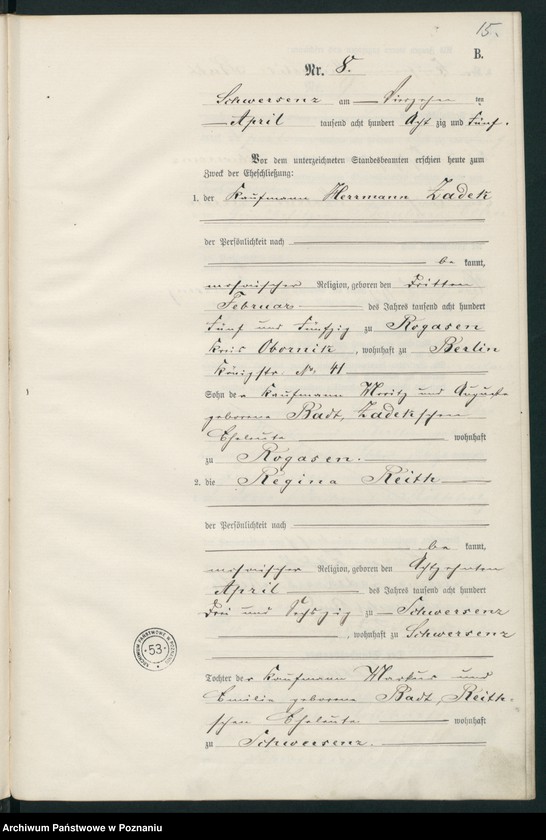 15.
B.
Nr. 8.
Schwersenz am Vierzehn ten
April tausend acht hundert Acht zig und Fünf.
Vor dem unterzeichneten Standesbeamten erschien heute zum
Zweck der Eheschließung:
1. der Kaufmann Herrmann Zadek
der Persönlichkeit nach
be kannt,
mosaischer Religion, geboren den Dritten
Februar des Jahres tausend acht hundert
Fünf und Fünfzig zu Rogasen
Kreis Obornik, wohnhaft zu Berlin
Königstr. No. 41
Sohn der Kaufmann Moritz und Auguste
geborene Badt, Zadek'schen
Eheleute wohnhaft
zu Rogasen.
2. die Regina Reith
der Persönlichkeit nach
be kannt,
mosaischer Religion, geboren den Achtzehnten
April des Jahres tausend acht hundert
Drei und Sechszig zu Schwersenz
, wohnhaft zu Schwersenz
ARCHIWUM PAŃSTWOWE W POZNANIU
53
Tochter der Kaufmann Markus und
Emilie geborene Badt, Reith-
schen Eheleute wohnhaft
zu Schwersenz.
Archiwum Państwowe w Poznaniu